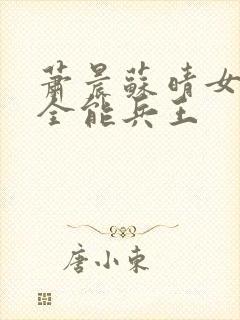 萧晨蘇晴女
全能兵王
唐小東